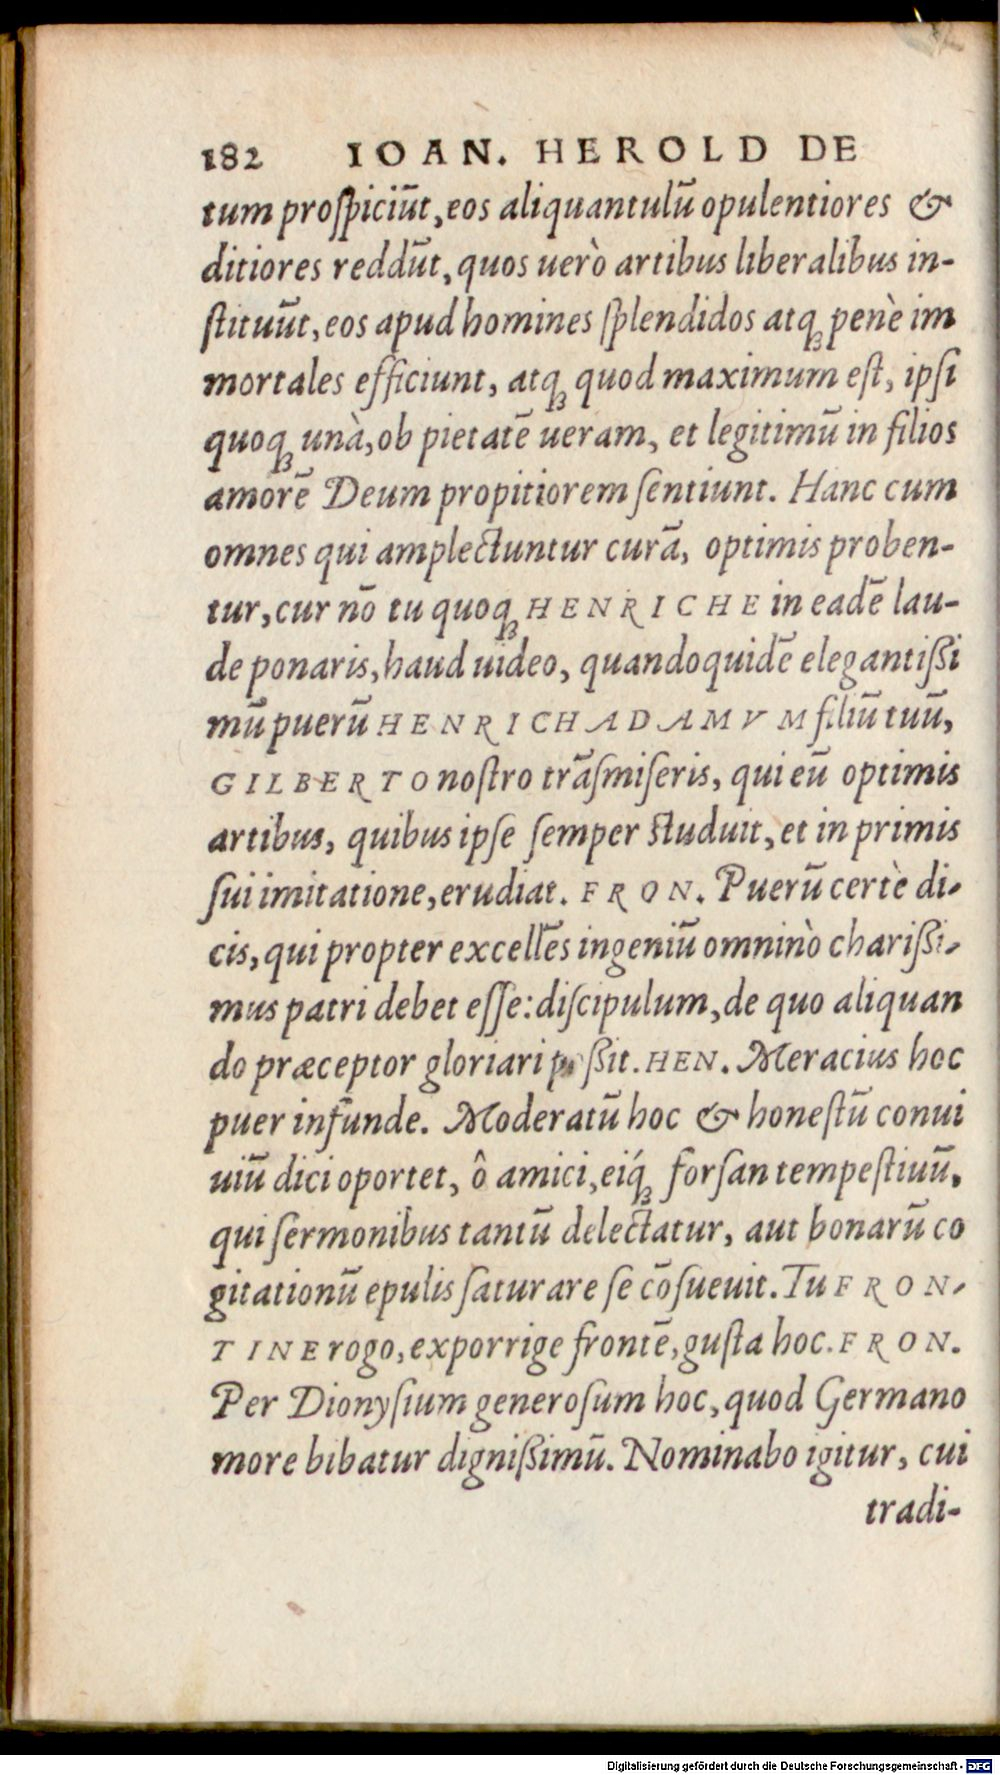 182 IOAN. HEROLD DE
tum proſpiciũt, eos aliquantulũ opulentiores &
ditiores reddũt, quos uerò artibus liberalibus in-
ſtituũt, eos apud homines ſplendidos atq́ꝫ penè im
mortales efficiunt, atqꝫ quod maximum eſt, ipſi
quoqꝫ unà, ob pietatẽ ueram, et legitimũ in filios
amorẽ Deum propitiorem ſentiunt. Hanc cum
omnes qui amplectuntur curã, optimis proben-
tur, cur nõ tu quoqꝫ HENRICHE in eadẽ lau-
de ponaris, haud uideo, quandoquidẽ elegantißi
mũ puerũ HENRICH ADAMVM filiũ tuũ,
GILBERTO noſtro trãſmiſeris, qui eũ optimis
artibus, quibus ipſe ſemper ſtuduit, et in primis
ſui imitatione, erudiat. FRON. Puerũ certè di-
cis, qui propter excellẽs ingeniũ omninò charißi-
mus patri debet eſſe: diſcipulum, de quo aliquan
do præceptor gloriari poßit. HEN. Meracius hoc
puer infunde. Moderatũ hoc & honeſtũ conui
uiũ dici oportet, ô amici, eiq́ꝫ forſan tempeſtiuũ,
qui ſermonibus tantũ delectatur, aut bonarũ co
gitationũ epulis ſaturare ſe cõſueuit. Tu FRON-
TINE rogo, exporrige frontẽ, guſta hoc. FRON.
Per Dionyſium generoſum hoc, quod Germano
more bibatur dignißimũ. Nominabo igitur, cui
tradi-
Digitalisierung gefördert durch die Deutsche Forschungsgemeinschaft - DFG